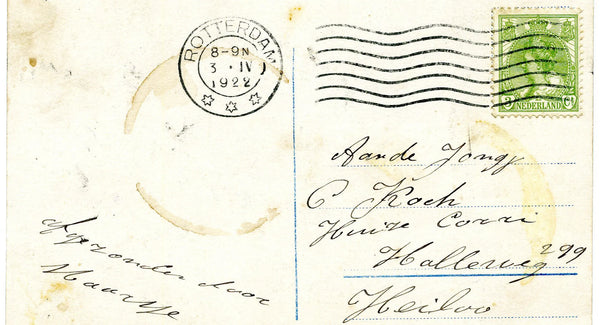 ROTTERDAM
8-9N
3 . IV
1922
3 Ct
NEDERLAND
Aan de Jongj
C Koch
Huize Corri
Halleweg 299
Heiloo
afgezonden door
Maartje